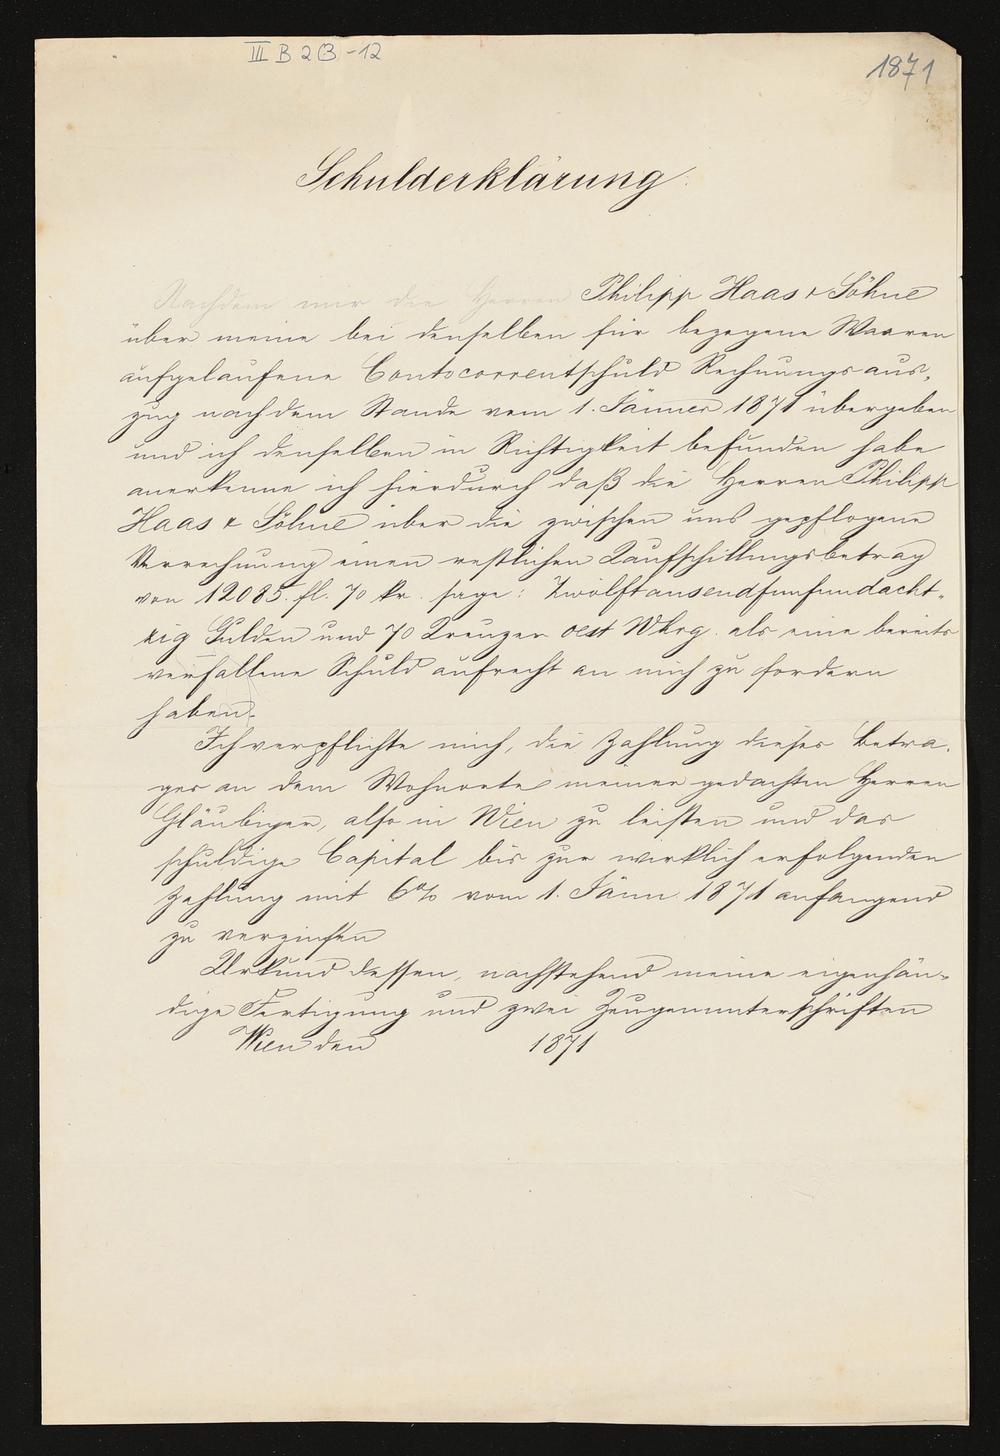 III B 2 B - 12
1871
Schulderklärung.
Nachdem mir die Herren Philipp Haas & Söhne
über meine bei denselben für bezogene Waaren
aufgelaufene Contocorrentschuld Rechnungsaus-
zug nach dem Stande vom 1. Jänner 1871 übergeben
und ich denselben in Richtigkeit befunden habe
anerkenne ich hierdurch daß die Herren Philipp
Haas & Söhne über die zwischen uns gepflogene
Verrechnung einen restlichen Kaufschillingsbetrag
von 12085. fl. 70 kr. sage: Zwölftausendfünfundacht-
zig Gulden und 70 Kreuzer oest Whrg. als eine bereits
verfallene Schuld aufrecht an mich zu fordern
haben.
Ich verpflichte mich, die Zahlung dieses Betra-
ges an dem Wohnorte meiner gedachten Herren
Gläubiger, also in Wien zu leisten und das
schuldige Capital bis zur wirklich erfolgenden
Zahlung mit 6% vom 1. Jänn. 1871 anfangend
zu verzinsen
Urkund dessen, nachstehend meine eigenhän-
dige Fertigung und zwei Zeugenunterschriften
Wien den 1871